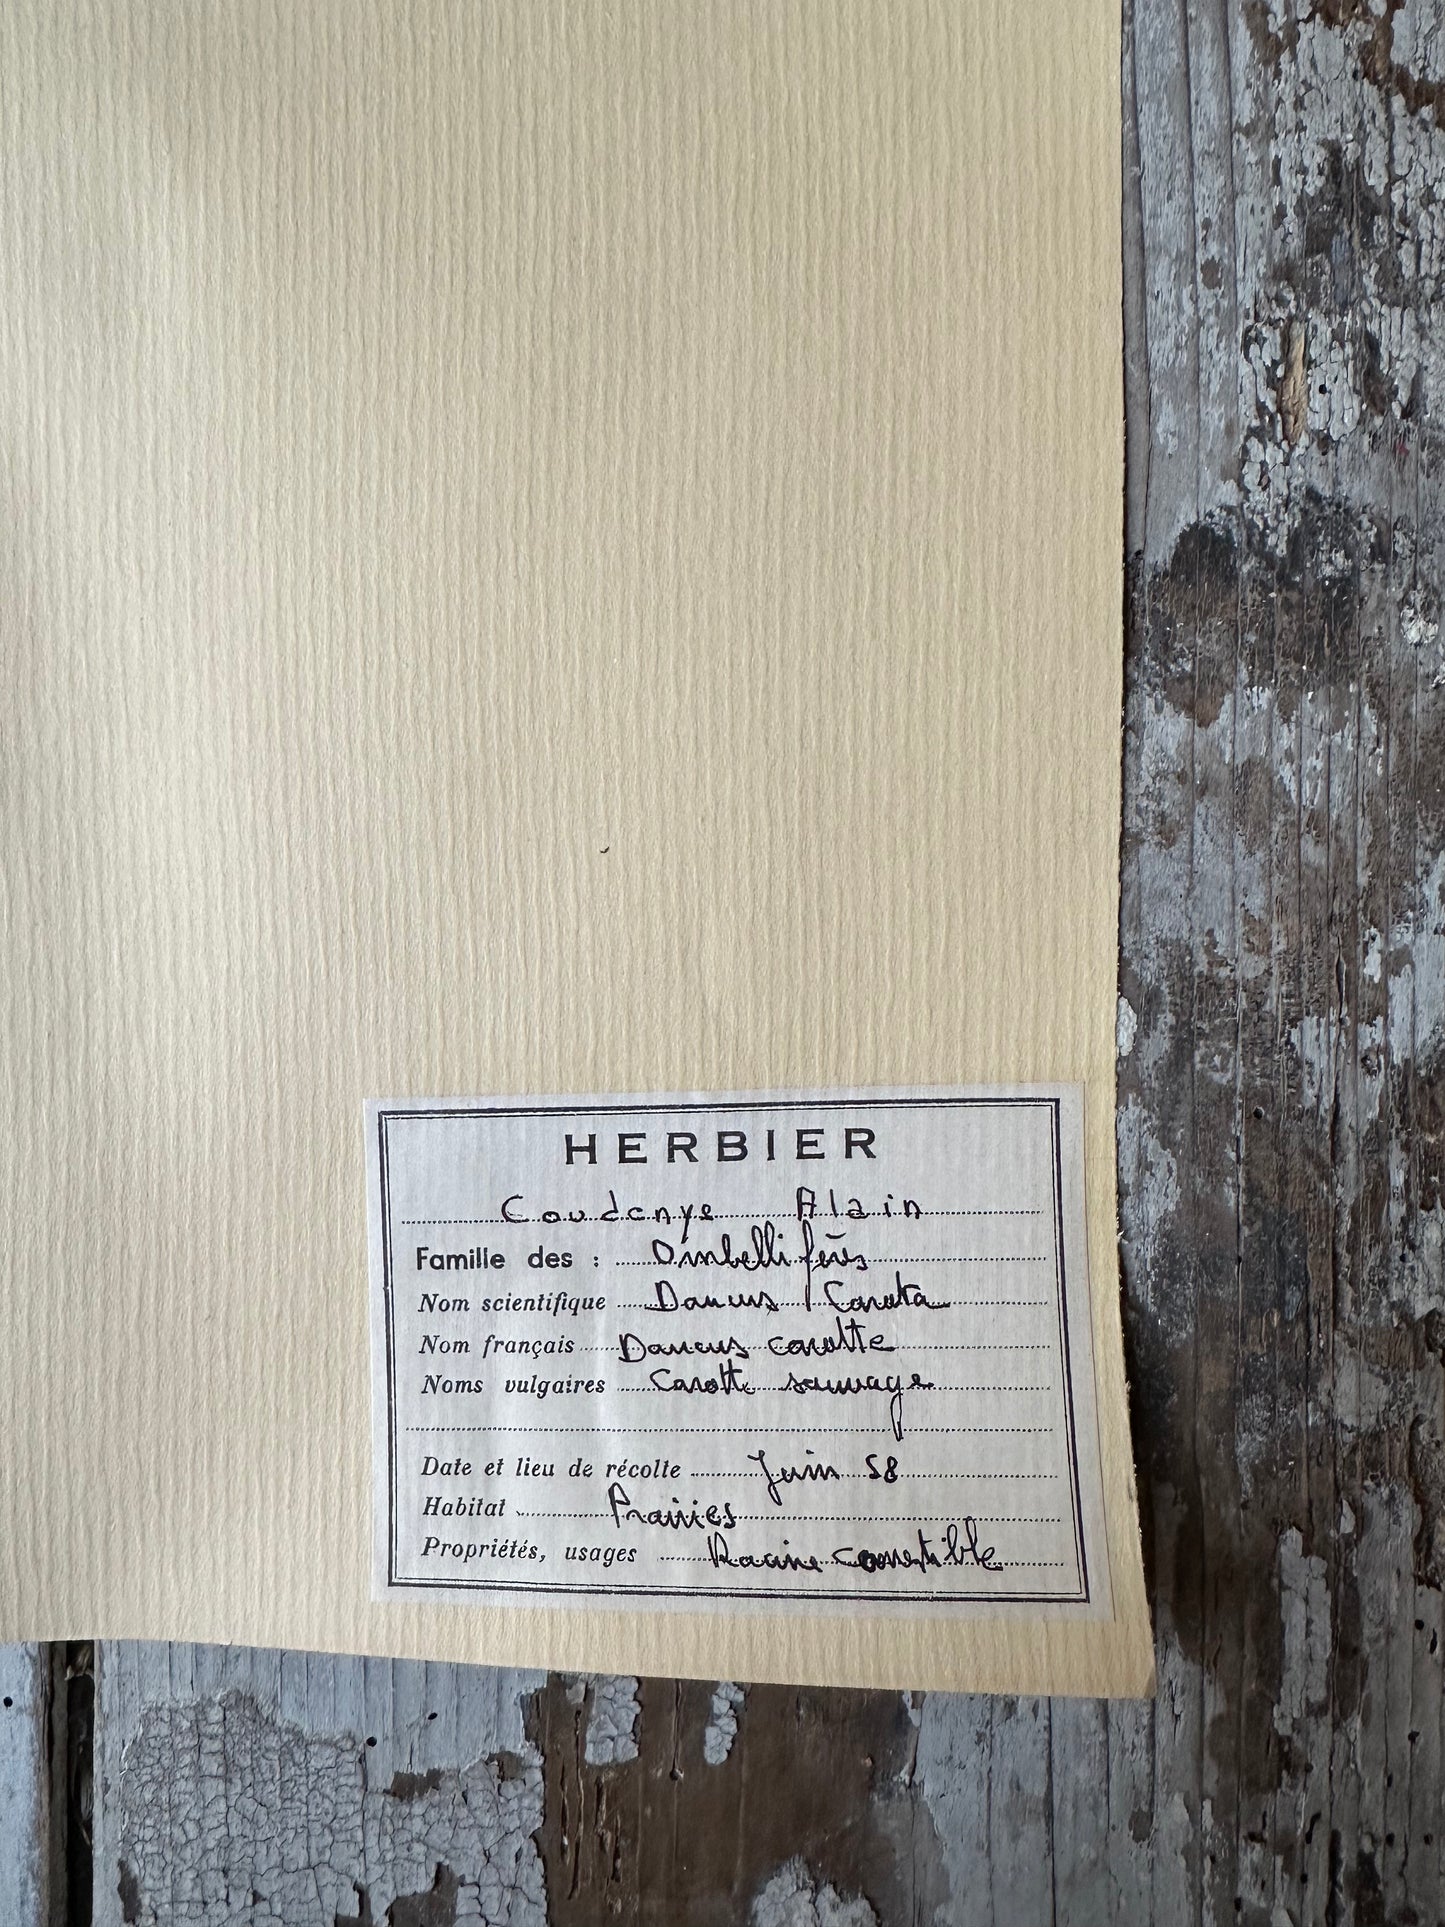 HERBIER
Coudenye Alain
Famille des : Ombellifères
Nom scientifique Daucus Carota
Nom français Daucus carotte
Noms vulgaires Carotte sauvage
Date et lieu de récolte Juin 58
Habitat Prairies
Propriétés, usages Racine comestible